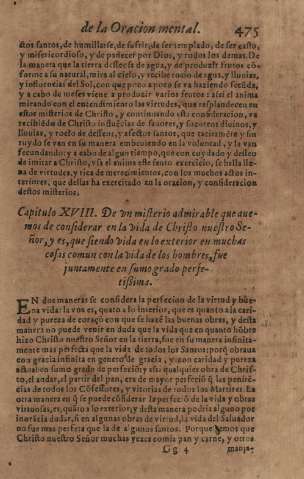 de la Oracion mental. 475
ctos santos, de humillarse, de sufrir, de ser templado, de ser casto,
y misericordioso, y de padecer por Dios, y todos los demas. De
la manera que la tierra dessea de agua, y de produzir frutos cō
forme a su natural, mira al cielo, y recibe rocio de agua, y lluuias,
y influencias del Sol, con que poco a poco se va haziendo fecūda,
y a cabo de meses viene a produzir varios frutos: assi el anima
mirando con el entendimiento las virtudes, que resplandecen en
estos misterios de Christo, y continuando esta consideracion, va
recibiēdo de Christo influēcias de fauores, y socorros diuinos, y
lluuias, y rocio de desseos, y afectos santos, que
se van en su manera embeuiendo en la voluntad, y la van
fecundando: y a cabo de algun tiempo, que con cuydado y desseo
de imitar a Christo, vsa el anima este santo exercicio, se halla lle-
na de virtudes, y rica de merecimientos, con los muchos actos in-
teriores, que dellas ha exercitado en la oracion, y consideracion
destos misterios.
Capitulo XVIII. De vn misterio admirable que aue-
mos de considerar en la vida de Christo nuestro Se-
ñor, y es, que siendo vida en lo exterior en muchas
cosas comun con la vida de los hombres, fue
juntamente en sumo grado perfe-
tissima.
EN dos maneras se considera la perfecion de la virtud y bue-
na vida: la vna es, quanto a lo interior, que es quanto a la cari-
dad y pureza de coraçon con que se hazē las buenas obras, y desta
manera no puede venir en duda que la vida que en quanto hōbre
hizo Christo nuestro Señor en la tierra, fue en su manera infinita-
mente mas perfecta que la vida de todos los Santos: porq̄ obraua
con gracia infinita en genero de gracia, y con caridad y pureza
actual en sumo grado de perfeciō; y assi qualquier obra de Chris-
to, el andar, el partir del pan, era de mayor perfeciō q̄ las peniten-
cias de todos los Cōfessores, y vitorias de todos los Martires. La
otra manera en q̄ se puede cōsiderar la perfeciō de la vida y obras
virtuosas, es, quāto a lo exterior, y desta manera podria alguno por
inorācia dudar, si en algunas obras de virtud, la vida del Saluador
no fue mas perfecta que la de algunos santos. Porque vemos que
Christo nuestro Señor muchas vezes comia pan y carne, y otros
Gg 4 manja-